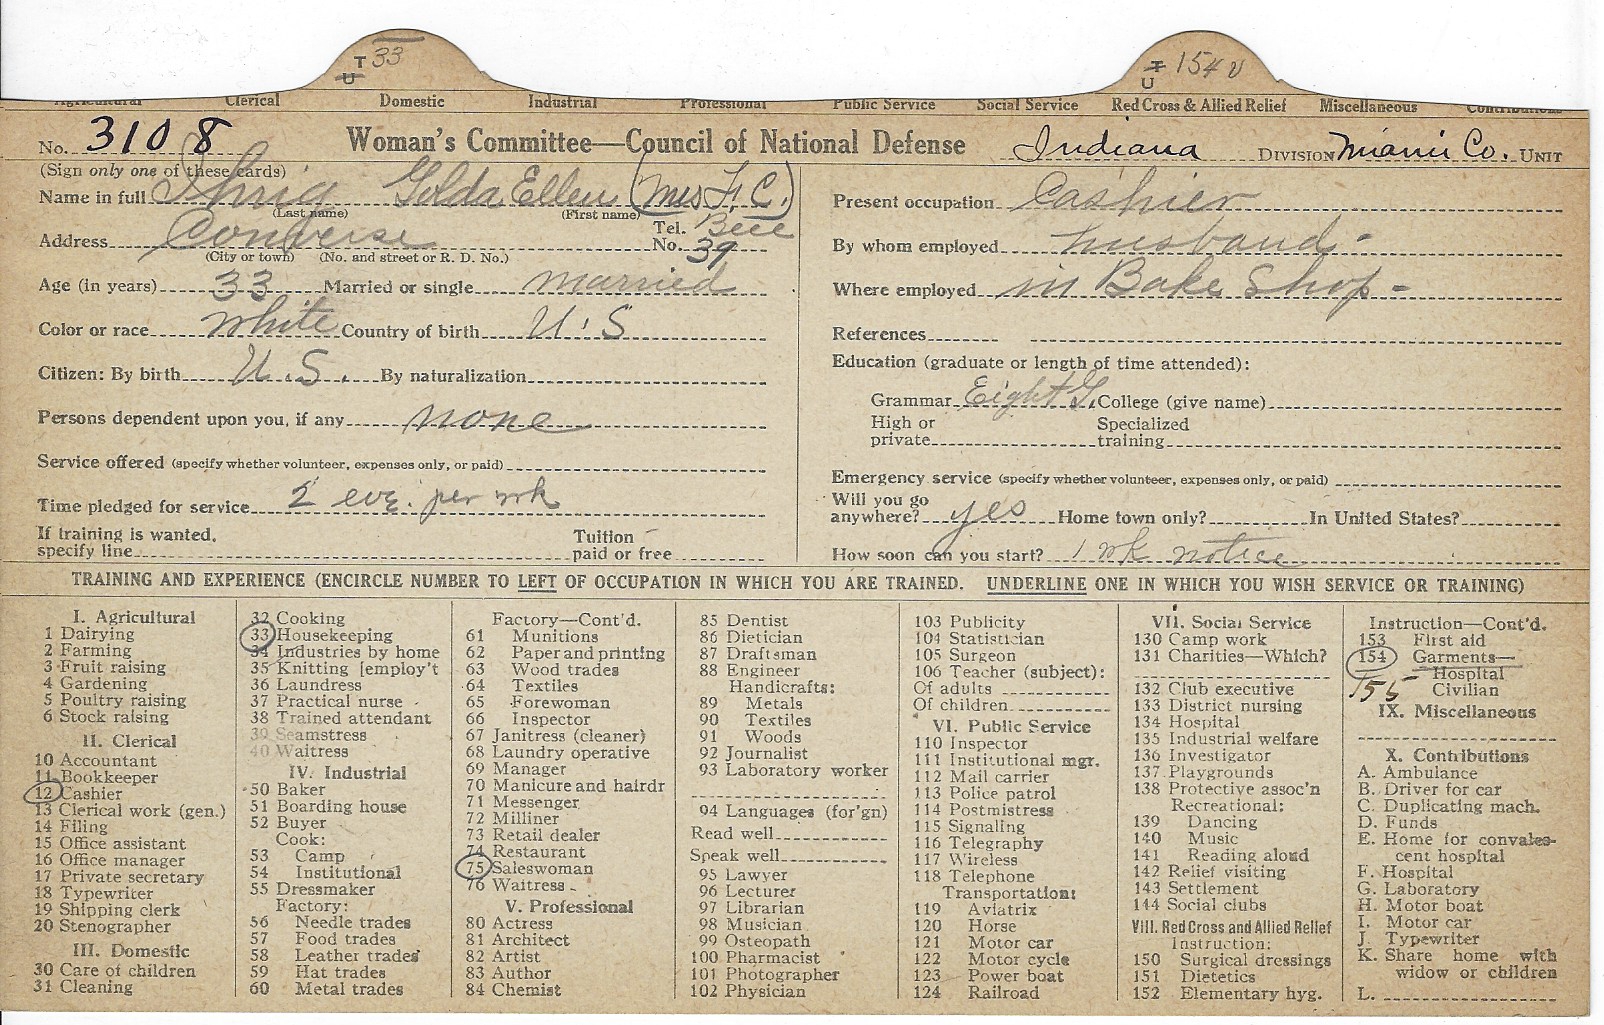 T 33
U
T 154 U
U
Agricultural Clerical Domestic Industrial Professional Public Service Social Service Red Cross & Allied Relief Miscellaneous Contributions
No. 3108 Woman's Committee—Council of National Defense Indiana DIVISION Miami Co. UNIT
(Sign only one of these cards)
Name in full Ihrig Golda Ellen (Mrs F. C.)
(Last name) (First name)
Address Converse Tel. No. Bell 39
(City or town) (No. and street or R. D. No.)
Age (in years) 33 Married or single married
Color or race white Country of birth U.S
Citizen: By birth U.S. By naturalization
Persons dependent upon you, if any none
Service offered (specify whether volunteer, expenses only, or paid)
Time pledged for service 2 eve. per wk
If training is wanted, specify line Tuition paid or free
Present occupation Cashier
By whom employed husband -
Where employed in Bake Shop -
References
Education (graduate or length of time attended):
Grammar Eight G. College (give name)
High or private Specialized training
Emergency service (specify whether volunteer, expenses only, or paid)
Will you go anywhere? yes Home town only? In United States?
How soon can you start? 1 wk notice
TRAINING AND EXPERIENCE (ENCIRCLE NUMBER TO LEFT OF OCCUPATION IN WHICH YOU ARE TRAINED. UNDERLINE ONE IN WHICH YOU WISH SERVICE OR TRAINING)
I. Agricultural
1 Dairying
2 Farming
3 Fruit raising
4 Gardening
5 Poultry raising
6 Stock raising
II. Clerical
10 Accountant
11 Bookkeeper
12 Cashier
13 Clerical work (gen.)
14 Filing
15 Office assistant
16 Office manager
17 Private secretary
18 Typewriter
19 Shipping clerk
20 Stenographer
III. Domestic
30 Care of children
31 Cleaning
32 Cooking
33 Housekeeping
34 Industries by home
35 Knitting [employ't
36 Laundress
37 Practical nurse
38 Trained attendant
39 Seamstress
40 Waitress
IV. Industrial
50 Baker
51 Boarding house
52 Buyer
Cook:
53 Camp
54 Institutional
55 Dressmaker
Factory:
56 Needle trades
57 Food trades
58 Leather trades
59 Hat trades
60 Metal trades
Factory—Cont'd.
61 Munitions
62 Paper and printing
63 Wood trades
64 Textiles
65 Forewoman
66 Inspector
67 Janitress (cleaner)
68 Laundry operative
69 Manager
70 Manicure and hairdr
71 Messenger
72 Milliner
73 Retail dealer
74 Restaurant
75 Saleswoman
76 Waitress
V. Professional
80 Actress
81 Architect
82 Artist
83 Author
84 Chemist
85 Dentist
86 Dietician
87 Draftsman
88 Engineer
Handicrafts:
89 Metals
90 Textiles
91 Woods
92 Journalist
93 Laboratory worker
94 Languages (for'gn)
Read well
Speak well
95 Lawyer
96 Lecturer
97 Librarian
98 Musician
99 Osteopath
100 Pharmacist
101 Photographer
102 Physician
103 Publicity
104 Statistician
105 Surgeon
106 Teacher (subject):
Of adults
Of children
VI. Public Service
110 Inspector
111 Institutional mgr.
112 Mail carrier
113 Police patrol
114 Postmistress
115 Signaling
116 Telegraphy
117 Wireless
118 Telephone
Transportation:
119 Aviatrix
120 Horse
121 Motor car
122 Motor cycle
123 Power boat
124 Railroad
VII. Social Service
130 Camp work
131 Charities—Which?
132 Club executive
133 District nursing
134 Hospital
135 Industrial welfare
136 Investigator
137 Playgrounds
138 Protective assoc'n
Recreational:
139 Dancing
140 Music
141 Reading aloud
142 Relief visiting
143 Settlement
144 Social clubs
VIII. Red Cross and Allied Relief
Instruction:
150 Surgical dressings
151 Dietetics
152 Elementary hyg.
Instruction—Cont'd.
153 First aid
154 Garments—
Hospital
155 Civilian
IX. Miscellaneous
X. Contributions
A. Ambulance
B. Driver for car
C. Duplicating mach.
D. Funds
E. Home for convales-
cent hospital
F. Hospital
G. Laboratory
H. Motor boat
I. Motor car
J. Typewriter
K. Share home with
widow or children
L.